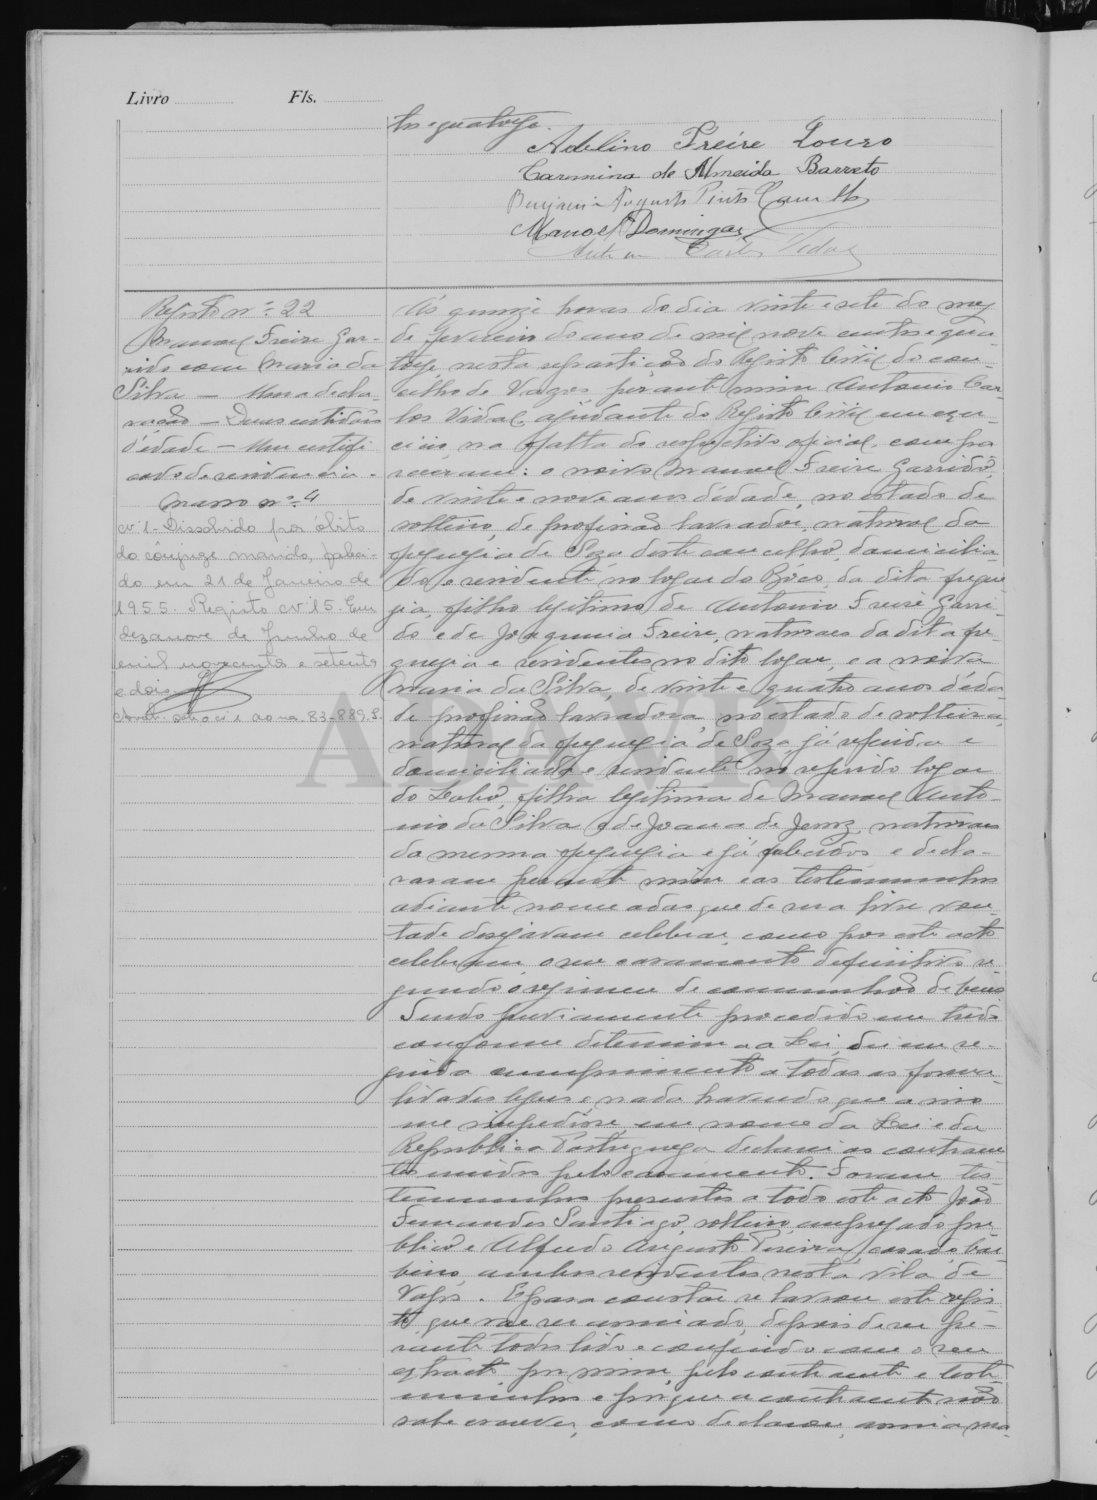 Livro Fls.
tos e quatorze.
Adelino Freire Louzo
Carmina de Almeida Barreto
Benjamin Augusto Pinto
Manoel Domingos
Antonio Carlos Vidal
Registo nº 22
Manoel Freire Gar-
rido com Maria da
Silva — Uma decla-
ração — Duas certidões
d'edade — Um certifi
cado de residencia.
Masso nº 4
cv 1 - Dissolvido por óbito
do cônjuge marido, faleci-
do em 21 de Janeiro de
1955. Registo cv 15. Em
dezanove de Junho de
mil novecentos e setenta
e dois
ADAVR
Ás quinze horas do dia vinte e sete do mez
de fevereiro do ano de mil nove centos e qua-
torze, nesta repartição do Registo Civil do con-
celho de Vagos, perante mim Antonio Car-
los Vidal, ajudante do Registo Civil em exer-
cicio na falta do respectivo oficial, compa-
receram: o noivo Manoel Freire Garrido,
de vinte e nove anos d'edade, no estado de
solteiro, de profissão lavrador, natural da
freguezia de Soza deste concelho, domicilia-
do e residente no logar do Bôco, da dita fregue-
zia, filho legitimo de Antonio Freire Garri-
do e de Joaquina Freire, naturaes da dita fre-
guezia e residentes no dito logar, e a noiva
Maria da Silva, de vinte e quatro anos d'eda-
de profissão lavradora, no estado de solteira,
natural da freguezia de Soza, já referida e
domiciliada e residente no referido logar
do Lobo, filha legitima de Manoel Anto-
nio da Silva e de Joana de Jesus, naturaes
da mesma freguezia e já falecidos e decla-
raram perante mim e as testemunhas
adiante nomeadas que de sua livre von-
tade desejavam celebrar, como por este acto
celebram, o seu casamento definitivo se-
gundo o regimen de communhão de bens
Sendo previamente procedido em tudo
conforme determina a Lei, dei em se-
guida cumprimento a todas as forma-
lidades legaes e, nada havendo que a isso
me impedisse, em nome da Lei e da
Republica Portugueza declarei os contraen
tes unidos pelo casamento. Foram tes-
temunhas presentes a todo este acto João
Fernandes Santiago, solteiro, empregado pu-
blico e Alfredo Augusto Pereira, casado, bar-
beiro, ambos residentes nesta vila de
Vagos. E para constar se lavrou este regis-
to que vae ser assinado, depois de ser pe-
rante todos lido e conferido com o seu
extracto por mim, pelo contraente e teste-
munhas e porque a contraente não
sabe escrever, como declarou, assina ma-